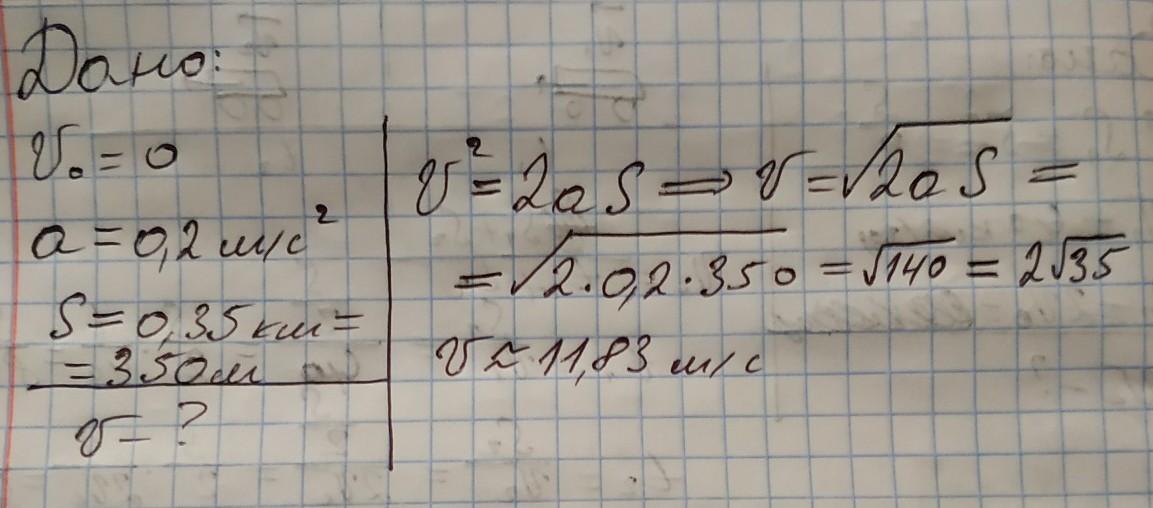 Дано:
v₀ = 0
a = 0,2 м/с²
S = 0,35 км =
= 350м
v – ?
v² = 2aS ⟹ v = √2aS =
= √2·0,2·350 = √140 = 2√35
v ≈ 11,83 м/с